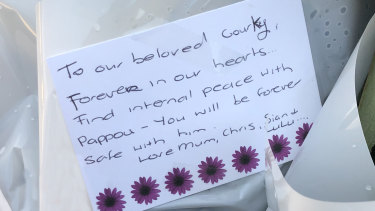 To our beloved Courtky,
Forever in our hearts...
Find internal peace with
Pappou - You will be forever
safe with him.
Love Mum, Chris, Sian &